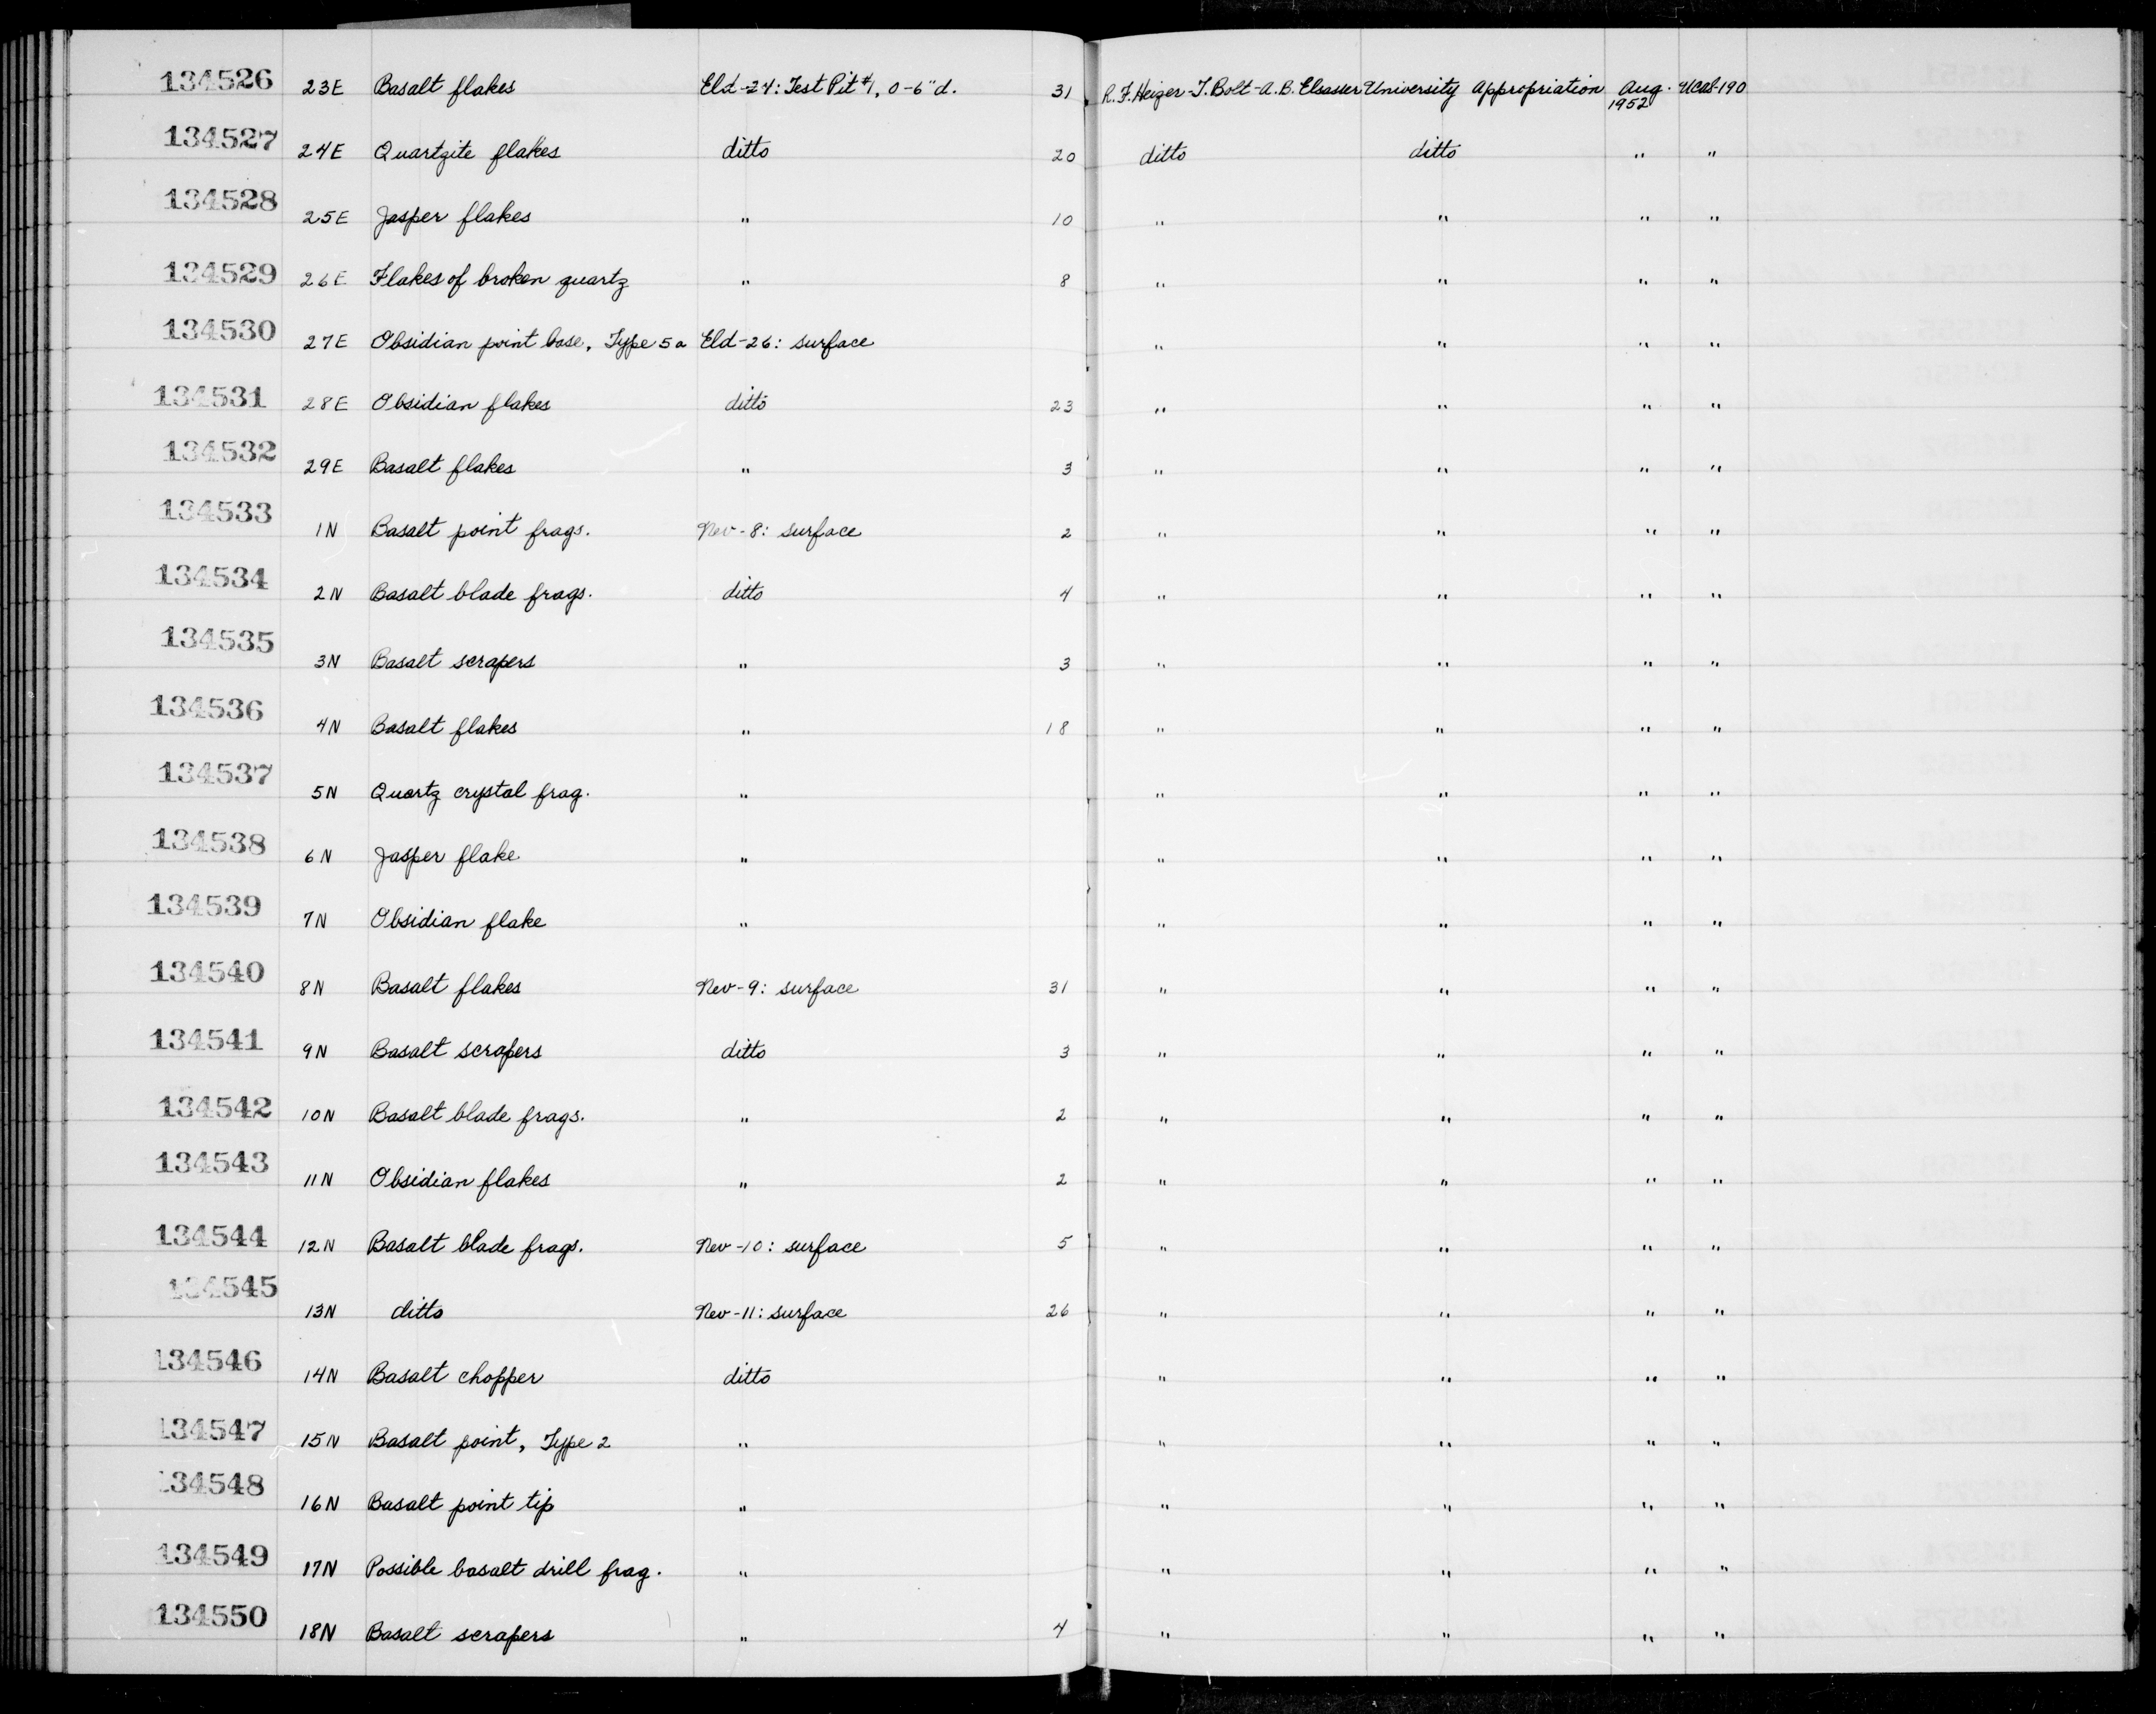 134526 23E Basalt flakes Eld-24: Test Pit #1, 0-6" d. 31 R.F. Heizer-T. Bolt-A.B. Elsasser University Appropriation Aug. 1952 UCAS-190
134527 24E Quartzite flakes ditto 20 ditto ditto " "
134528 25E Jasper flakes " 10 " " " "
134529 26E Flakes of broken quartz " 8 " " " "
134530 27E Obsidian point base, Type 5a Eld-26: surface " " " "
134531 28E Obsidian flakes ditto 23 " " " "
134532 29E Basalt flakes " 3 " " " "
134533 1N Basalt point frags. Nev-8: surface 2 " " " "
134534 2N Basalt blade frags. ditto 4 " " " "
134535 3N Basalt scrapers " 3 " " " "
134536 4N Basalt flakes " 18 " " " "
134537 5N Quartz crystal frag. " " " " "
134538 6N Jasper flake " " " " "
134539 7N Obsidian flake " " " " "
134540 8N Basalt flakes Nev-9: surface 31 " " " "
134541 9N Basalt scrapers ditto 3 " " " "
134542 10N Basalt blade frags. " 2 " " " "
134543 11N Obsidian flakes " 2 " " " "
134544 12N Basalt blade frags. Nev-10: surface 5 " " " "
134545 13N ditto Nev-11: surface 26 " " " "
134546 14N Basalt chopper ditto " " " "
134547 15N Basalt point, Type 2 " " " " "
134548 16N Basalt point tip " " " " "
134549 17N Possible basalt drill frag. " " " " "
134550 18N Basalt scrapers " 4 " " " "